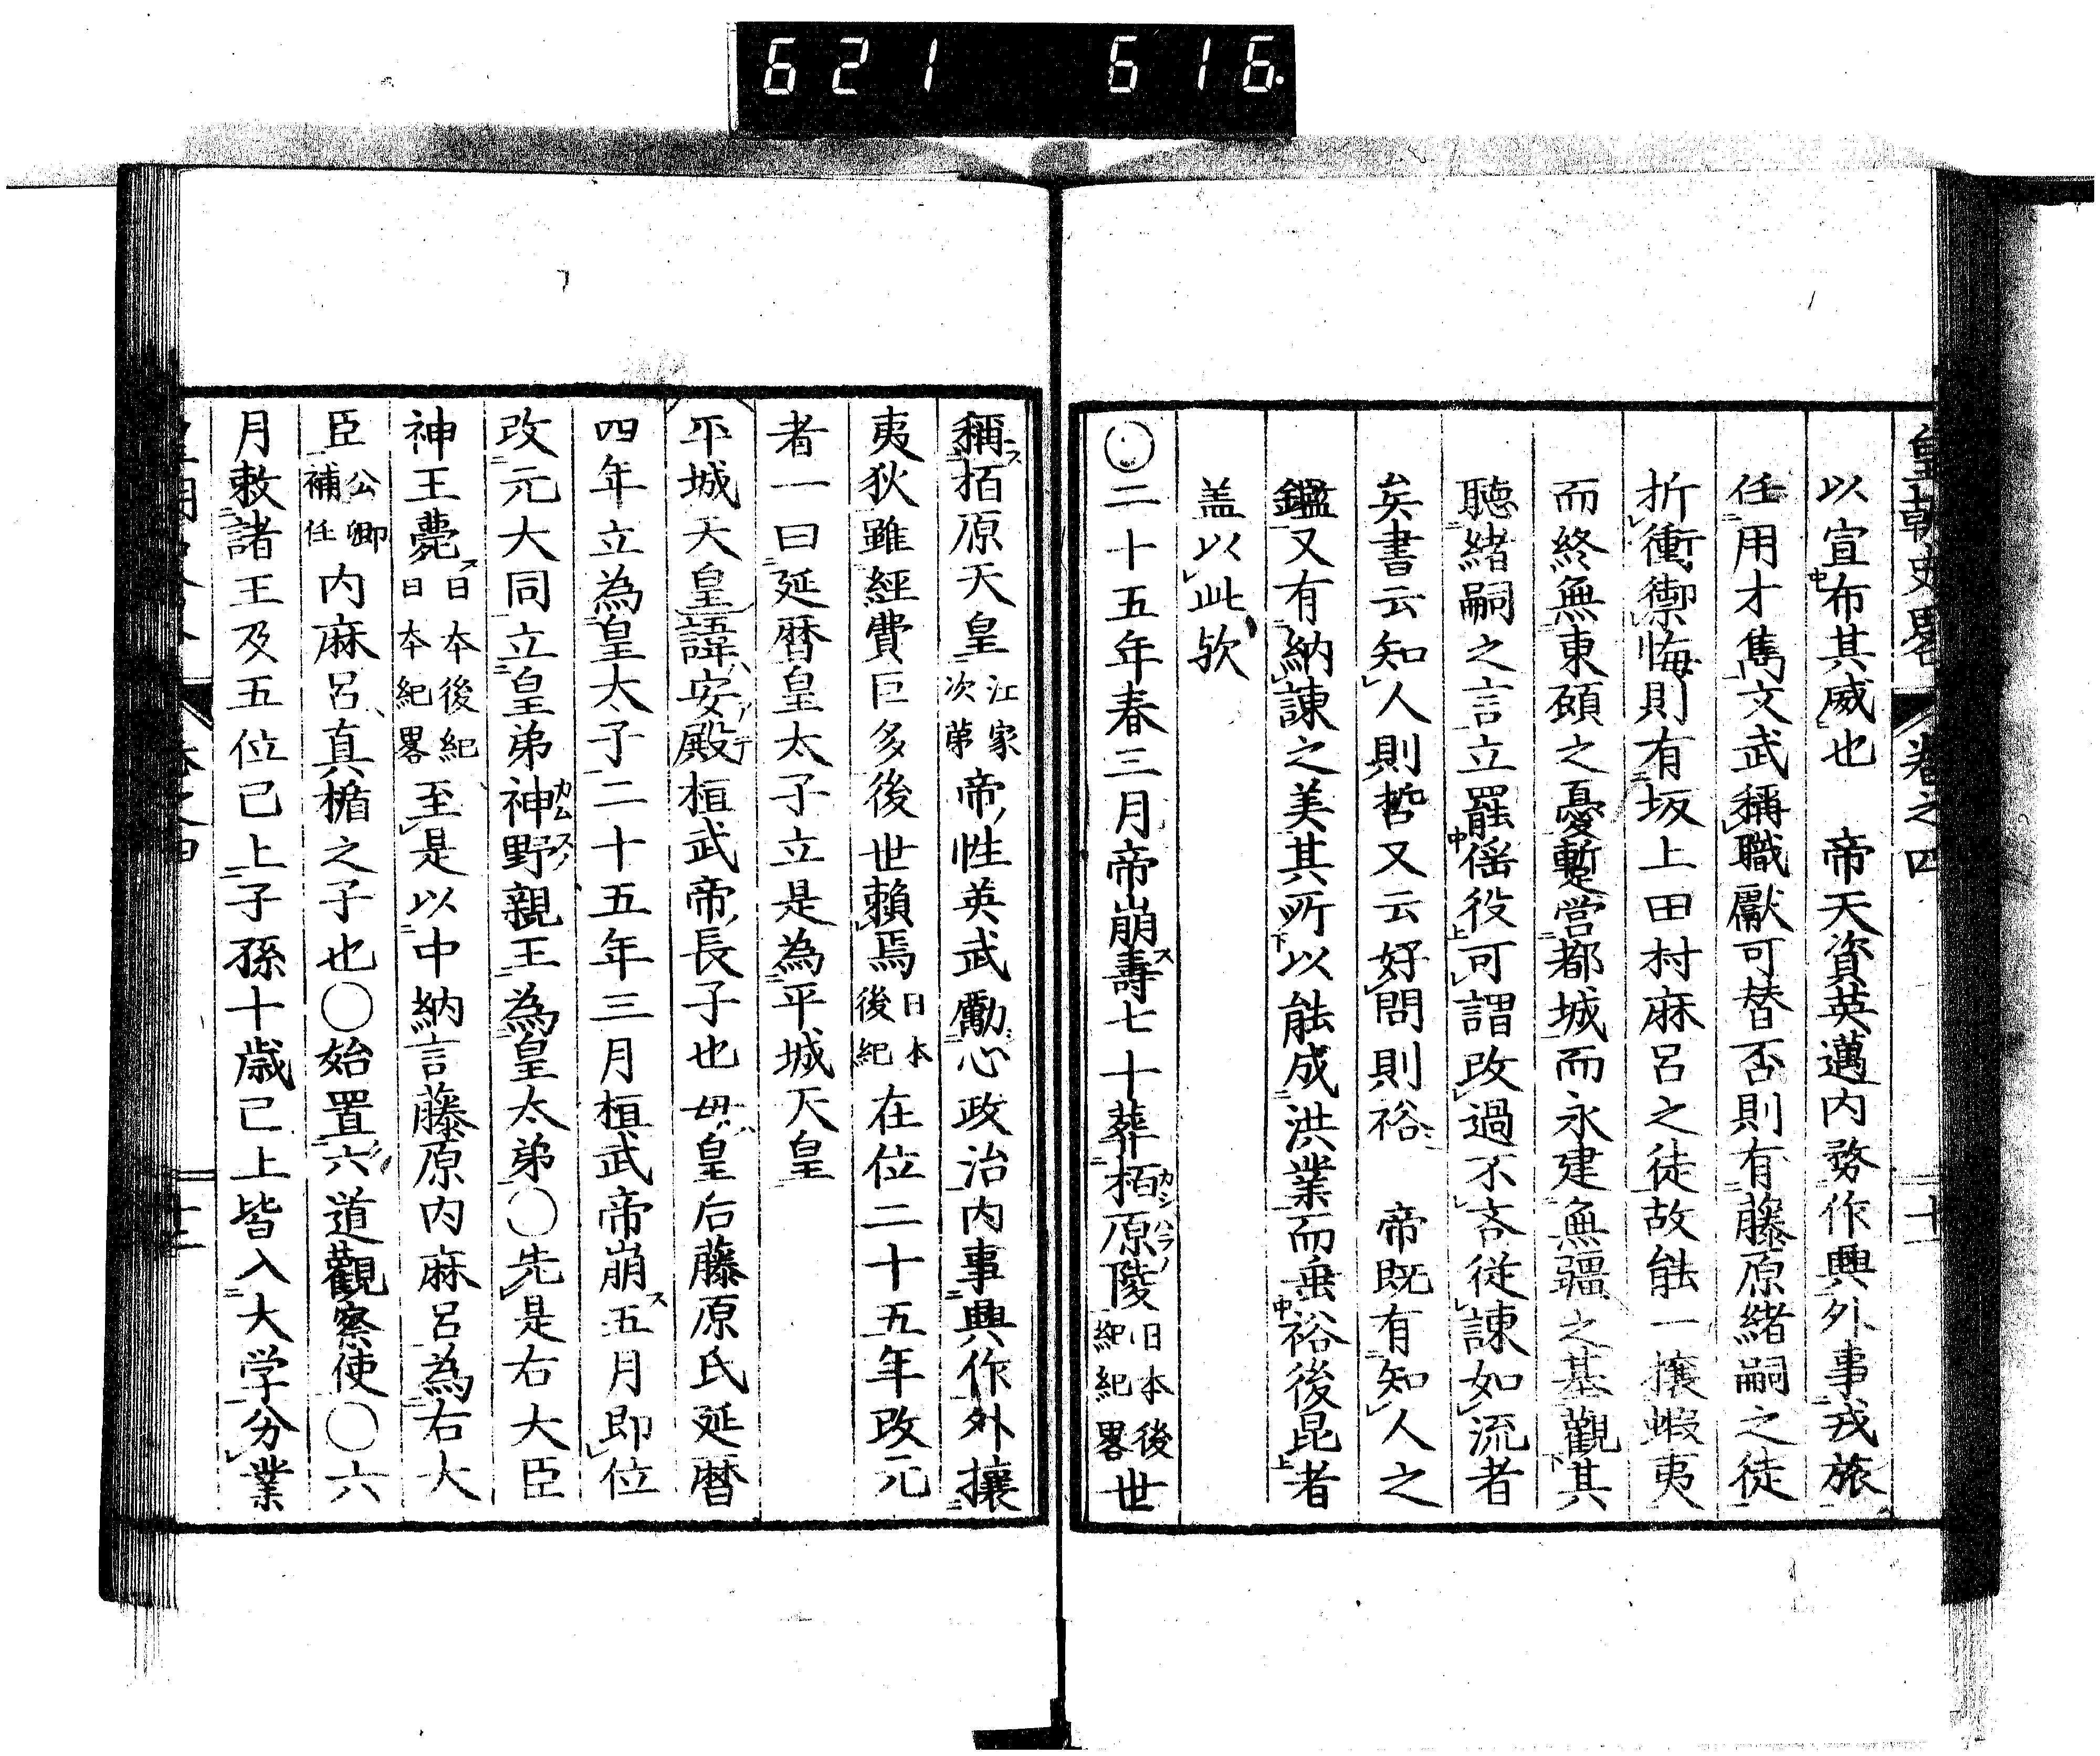 621 616.
皇朝史畧 卷之四 十一
以宣布其威也 帝天資英邁内務作興外事戎旅
任用才雋文武稱職獻可替否則有藤原緒嗣之徒
折衝禦侮則有坂上田村麻呂之徒故能一攘蝦夷
而終無東顧之憂暫営都城而永建無疆之基觀其
聽緒嗣之言立罷徭役可謂改過不吝從諫如流者
矣書云知人則哲又云好問則裕 帝既有知人之
鑑又有納諫之美其所以能成洪業而垂裕後昆者
盖以此欤
〇二十五年春三月帝崩壽七十葬栢原陵日本後紀紀畧世
稱栢原天皇江家次第帝性英武勵心政治内事興作外攘
夷狄雖經費巨多後世賴焉日本後紀在位二十五年改元
者一曰延暦皇太子立是為平城天皇
平城天皇諱安殿桓武帝長子也母皇后藤原氏延暦
四年立為皇太子二十五年三月桓武帝崩五月即位
改元大同立皇弟神野親王為皇太弟〇先是右大臣
神王薨日本後紀日本紀畧至是以中納言藤原内麻呂為右大
臣公卿補任内麻呂真楯之子也〇始置六道觀察使〇六
月敕諸王及五位已上子孫十歳已上皆入大学分業